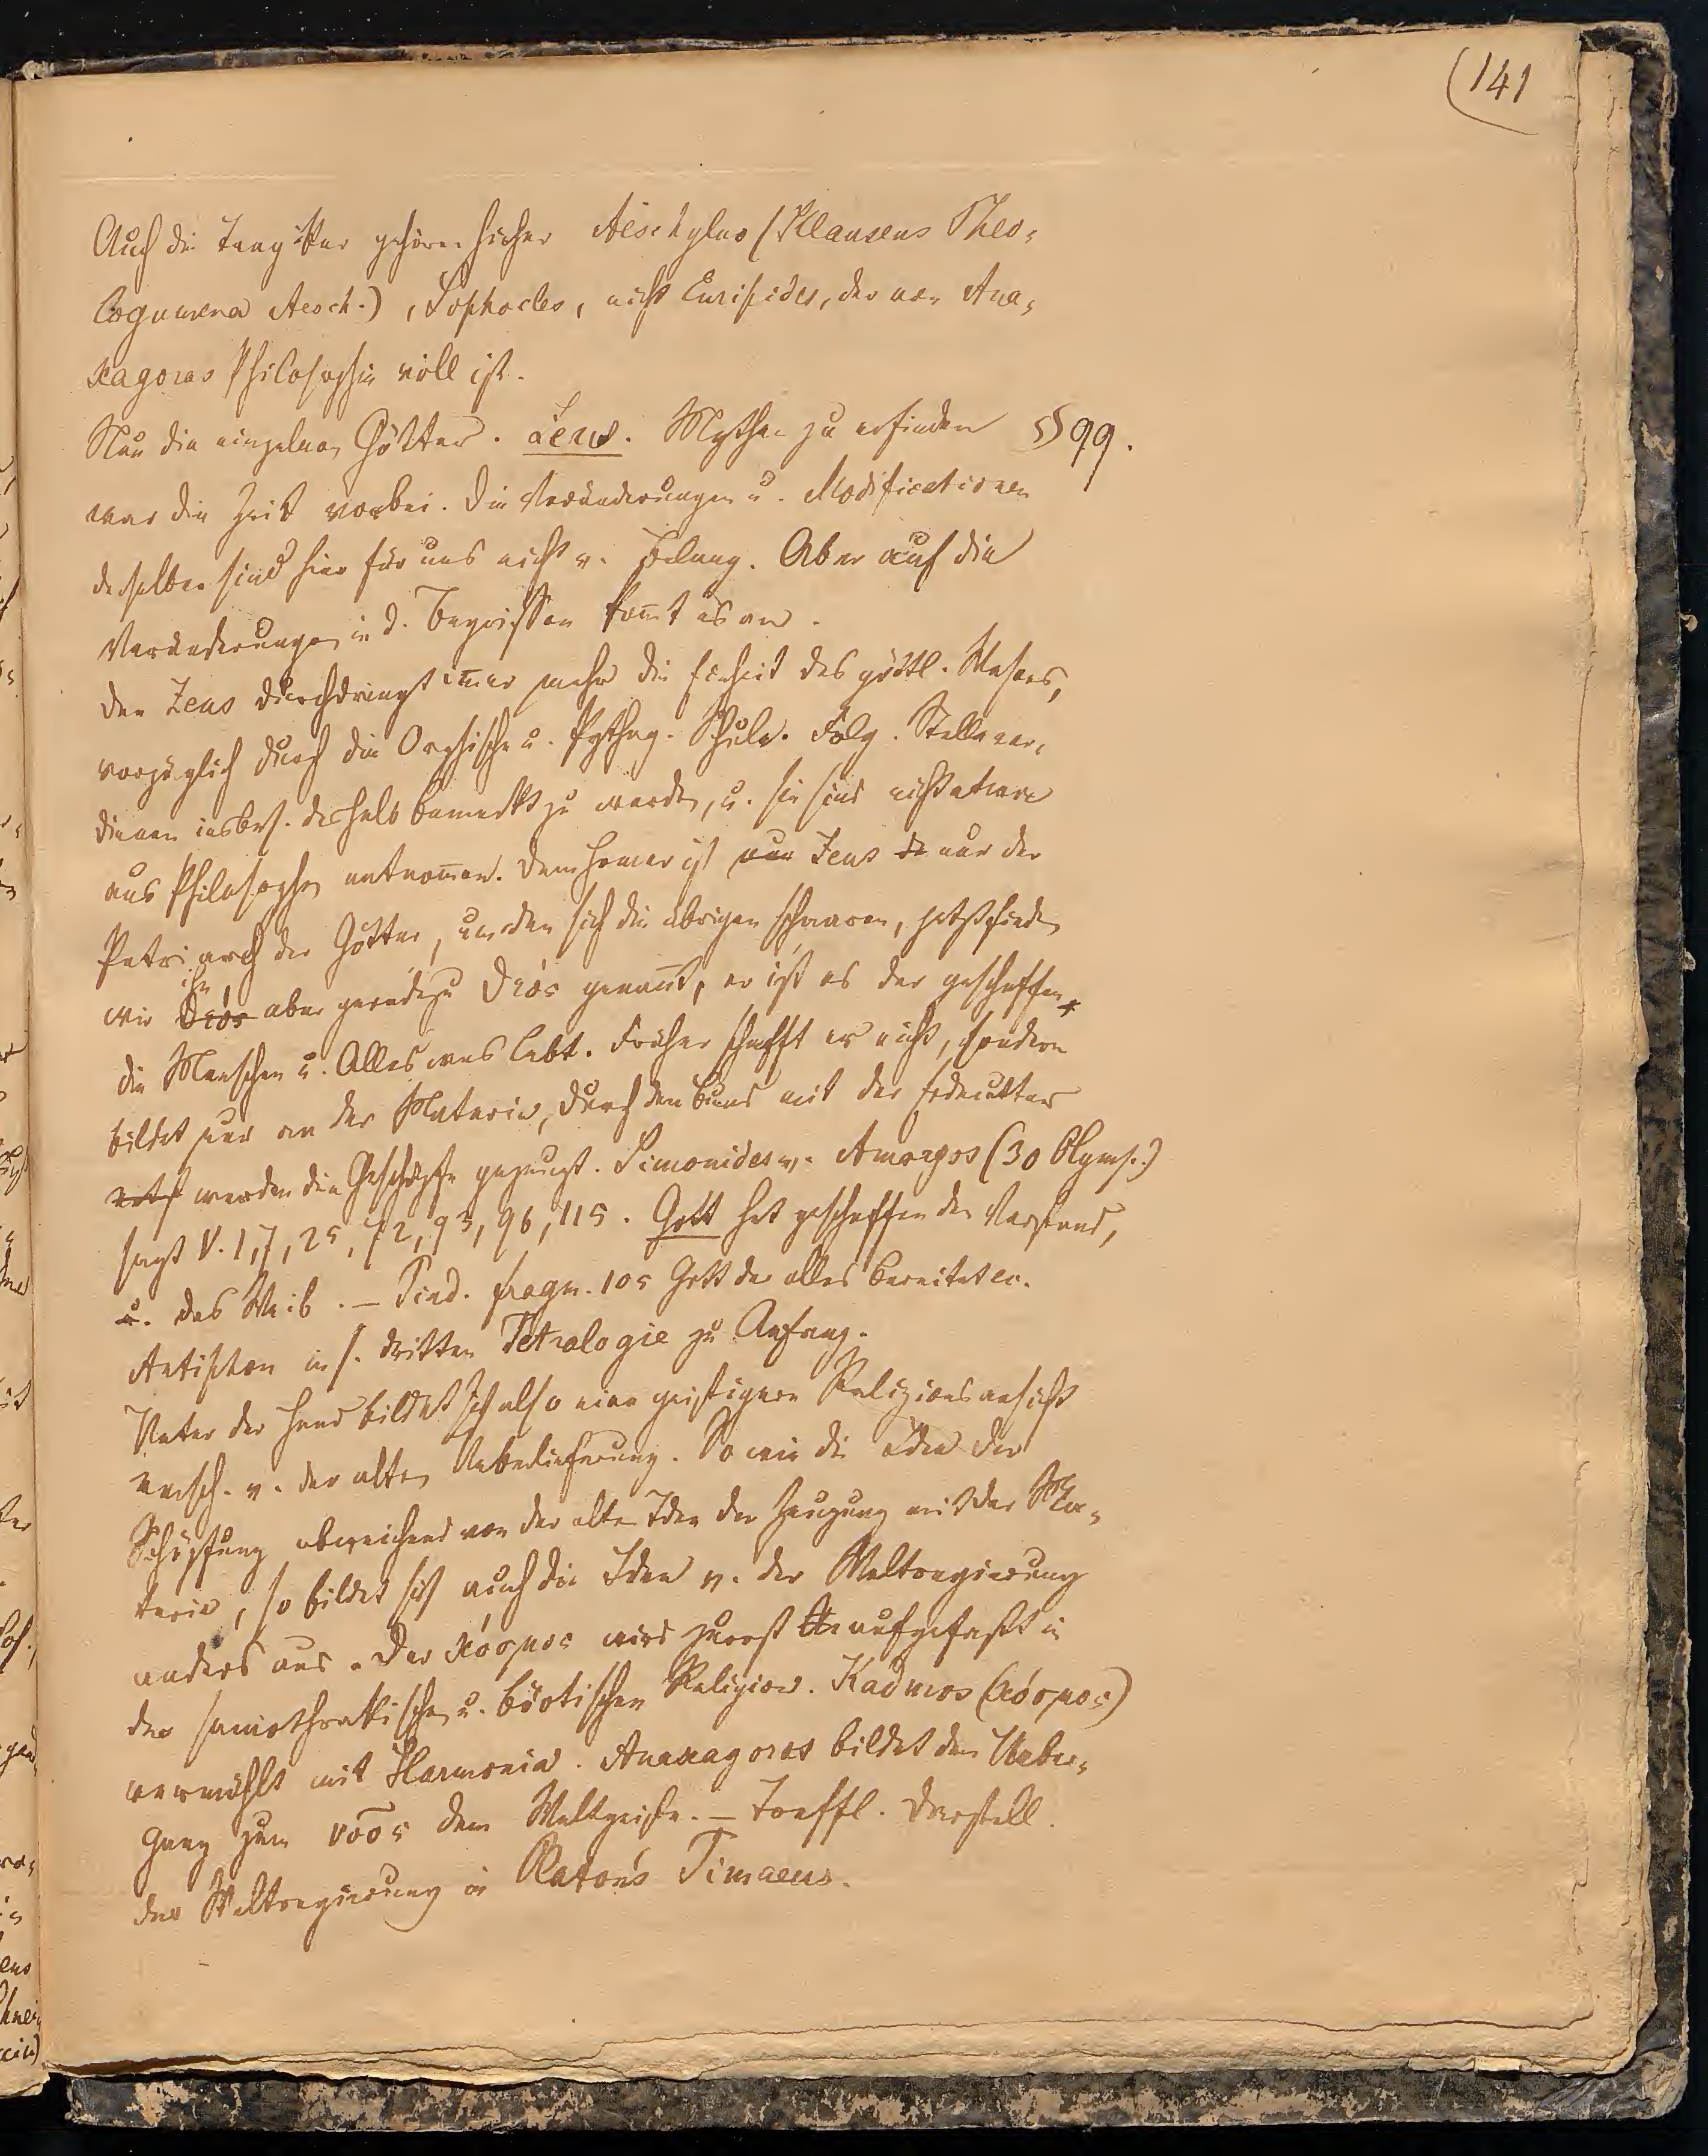 (141
Auch die Tragiker gehören hieher Aeschylus (Klausens Theo-
logumena Aesch.), Sophocles, nicht Euripides, der von Ana-
xagoras Philosophie voll ist.
Nun die einzelnen Götter. Zeus. Mythen zu erfinden §99.
war die Zeit vorbei. Die Veränderungen u. Modificationen
derselben sind hier für uns nicht v. Belang. Aber auf die
Veränderungen in d. Begriffen kom̄t es an.
Den Zeus durchdringt im̄er mehr die Einheit des göttl. Wesens,
vorzüglich durch die Orphische u. Pythag. Schule. Folg. Stellen ver-
dienen insbes. deshalb bemerkt zu werden, u. sie sind nicht etwa
aus Philosophen entnom̄en. Dem Homer ist nur Zeus nur der
Patriarch der Götter, um den sich die übrigen schaaren, jetzt finden
wir ihn aber geradezu θεός genan̄t, er ist es der geschaffen
die Menschen u. Alles was lebt. Früher schafft er nicht, sondern
bildet nur an der Materie, durch den Bund mit der Erdmutter
werden die Geschöpfe gezeugt. Simonides v. Amorgos (30 Olymp.)
sagt V. 1, 7, 25, 72, 93, 96, 115. Gott hat geschaffen den Verstand,
u. das Weib. — Pind. fragm. 105 Gott der alles bereitet
Antiphon in s. dritten Tetralogie zu Anfang.
Unter der Hand bildet sich also eine geistigere Religionsansicht
versch. v. der alten Ueberlieferung. So wie die Idee der
Schöpfung abweichend von der alten Idee der Zeugung mit der Ma-
terie, so bildet sich auch die Idee v. der Weltregierung
anders aus. Der κόσμος wird zuerst aufgefaßt in
der samothrakischen u. böotischen Religion. Kadmos (κόσμος)
vermählt mit Harmonia. Anaxagoras bildet den Ueber-
gang zum νόος dem Weltgeiste. — Treffl. Darstell.
der Weltregierung in Platon's Timaeus.